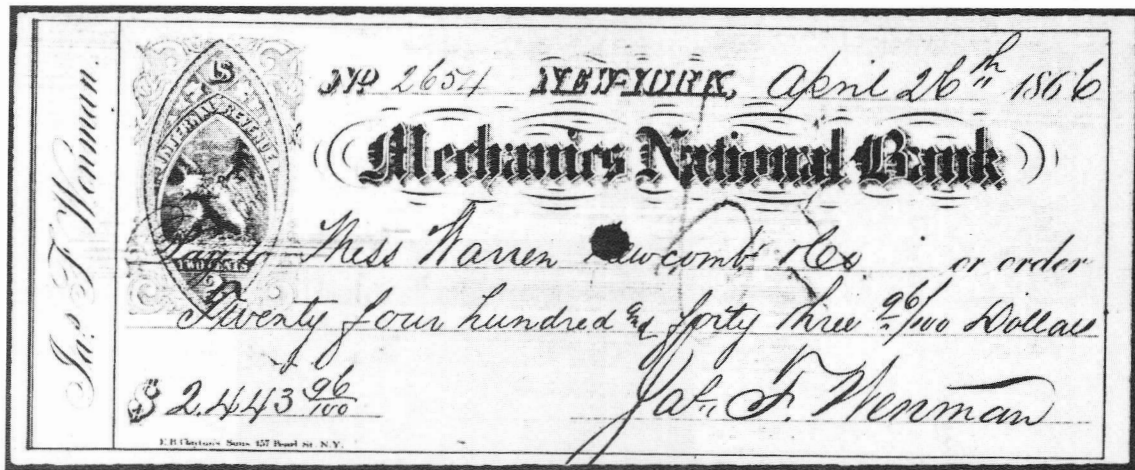 Jas. F. Wenman.
U.S.
INTERNAL REVENUE
No 2654 NEW-YORK, April 26th 1866
Mechanics National Bank
Pay to Mess Warren Newcomb & Co. or order
Twenty four hundred & forty three 96/100 Dollars
$ 2.443 96/100
Jas. F. Wenman
E.B. Clayton's Sons 157 Pearl St. N.Y.